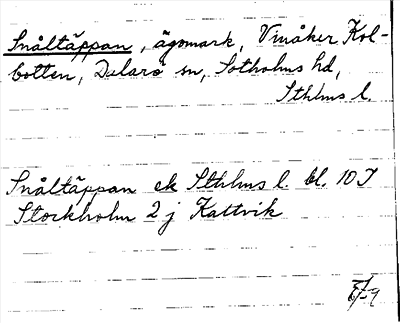 Snåltäppan, ägomark, Vinåker Kol-
botten, Dalarö sn, Sotholms hd,
Sthlms l.
Snåltäppan ek Sthlms l. bl. 10 I
Stockholm 2 j Kattvik